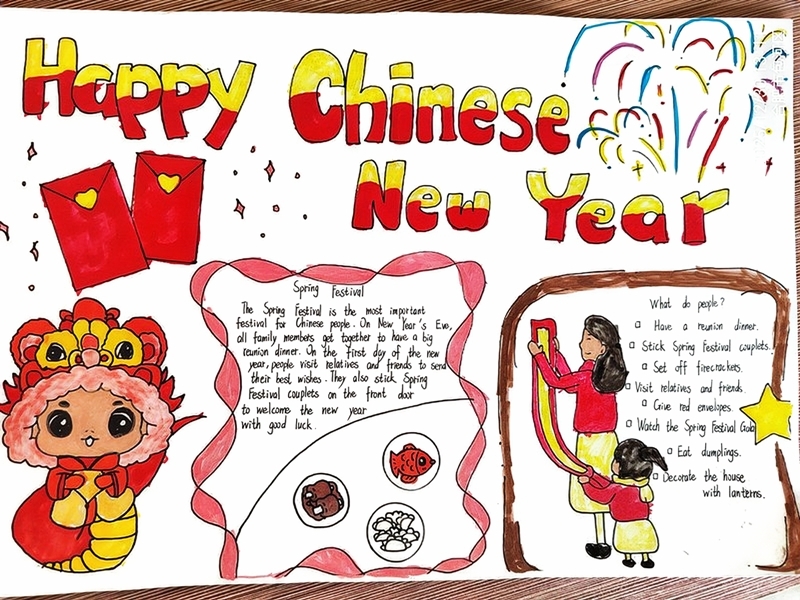 Happy Chinese
New Year
Spring Festival
The Spring Festival is the most important
festival for Chinese people. On New Year's Evo,
all family members get together to have a big
reunion dinner. On the first day of the new
year, people visit relatives and friends to send
their best wishes. They also stick Spring
Festival couplets on the front door
to welcome the new year
with good luck.
What do people?
Have a reunion dinner.
Stick Spring Festival couplets.
Set off firecrackers.
Visit relatives and friends.
Give red envelopes.
Watch the Spring Festival Gala
Eat dumplings.
Decorate the house
with lanterns.